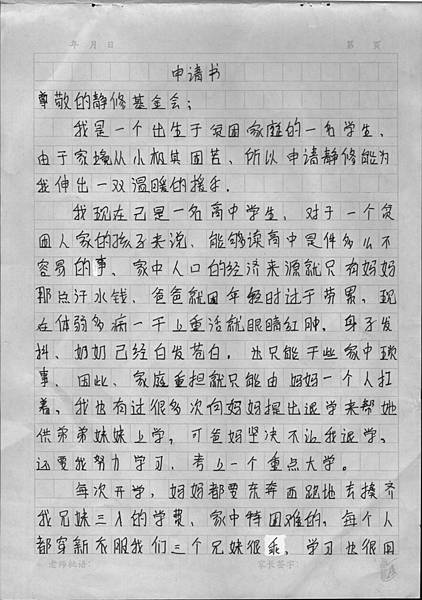 年 月 日 第 页
申请书
尊敬的静修基金会；
我是一个出生于贫困家庭的一名学生、
由于家境从小极其困苦、所以申请静修能为
我伸出一双温暖的援手.
我现在已是一名高中学生、对于一个贫
困人家的孩子来说、能够读高中是件多么不
容易的事、家中人口的经济来源就只有妈妈
那点汗水钱、爸爸就因年轻时过于劳累、现
在体弱多病一干上重活就眼睛红肿、身子发
抖、奶奶已经白发苍白。也只能干些家中琐
事、因此、家庭重担就只能由妈妈一个人扛
着、我也有过很多次向妈妈提出退学来帮她
供弟弟妹妹上学，可爸妈坚决不让我退学、
还要我努力学习、考上一个重点大学。
每次开学，妈妈都要东奔西跑地去揍齐
我兄妹三人的学费、家中特困难的、每个人
都穿新衣服我们三个兄妹很乖、学习也很用
老师批语： 家长签字：